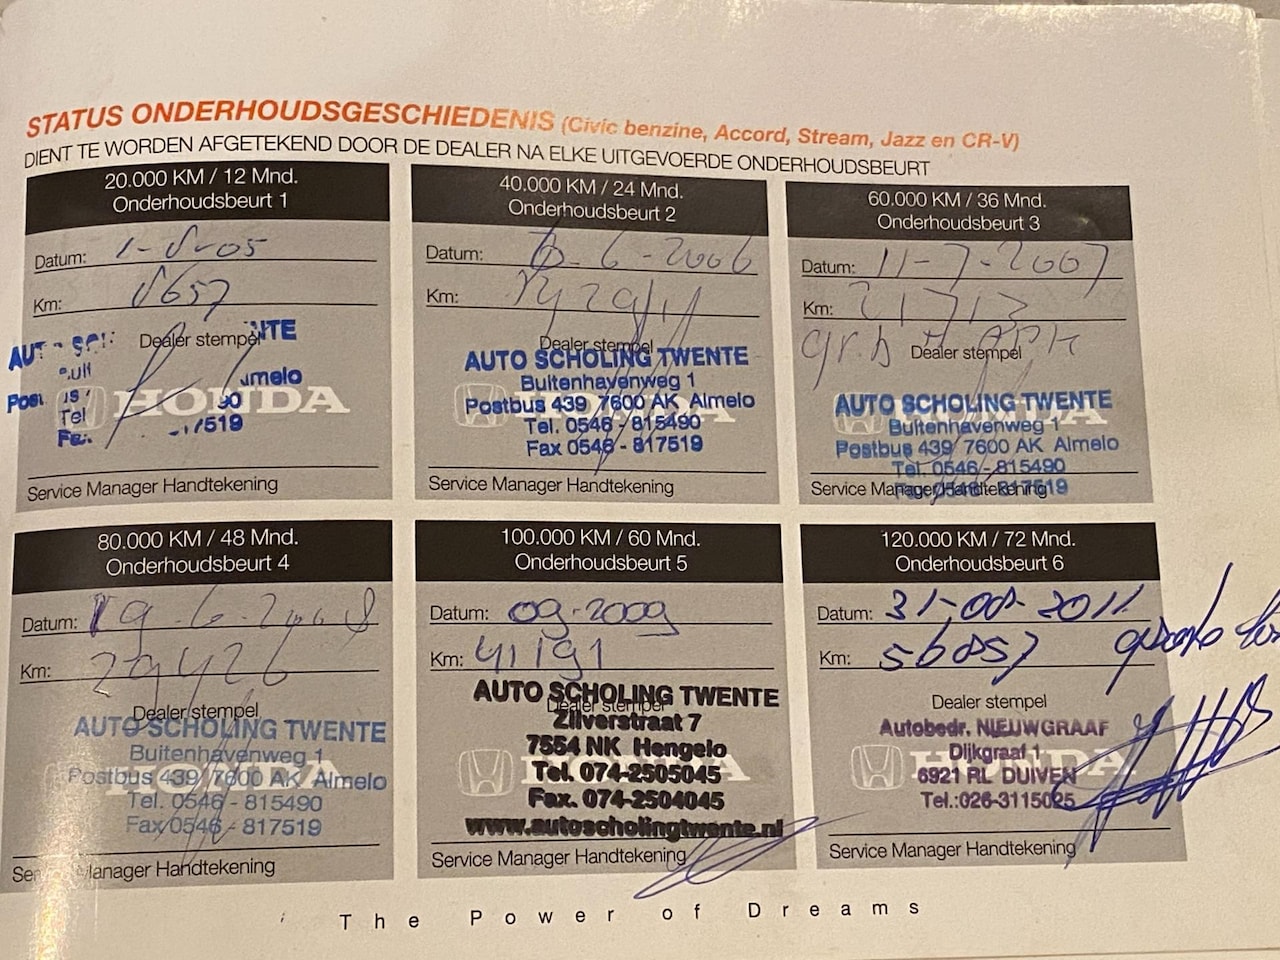 STATUS ONDERHOUDSGESCHIEDENIS (Civic benzine, Accord, Stream, Jazz en CR-V)
DIENT TE WORDEN AFGETEKEND DOOR DE DEALER NA ELKE UITGEVOERDE ONDERHOUDSBEURT
20.000 KM / 12 Mnd.
Onderhoudsbeurt 1
Datum:
Km: 8657
Dealer stempel
HONDA
Service Manager Handtekening
40.000 KM / 24 Mnd.
Onderhoudsbeurt 2
Datum: 6-2006
Km:
Dealer stempel
AUTO SCHOLING TWENTE
Buitenhavenweg 1
Postbus 439 7600 AK Almelo
Tel. 0546 - 815490
Fax 0546 - 817519
Service Manager Handtekening
60.000 KM / 36 Mnd.
Onderhoudsbeurt 3
Datum: 11-7-2007
Km: 21713
gr.b + APK
Dealer stempel
AUTO SCHOLING TWENTE
Buitenhavenweg 1
Postbus 439 7600 AK Almelo
Tel. 0546 - 815490
Fax 0546 - 817519
Service Manager Handtekening
80.000 KM / 48 Mnd.
Onderhoudsbeurt 4
Datum: 19-6-2008
Km: 29426
Dealer stempel
AUTO SCHOLING TWENTE
Buitenhavenweg 1
Postbus 439 7600 AK Almelo
Tel. 0546 - 815490
Fax 0546 - 817519
Service Manager Handtekening
100.000 KM / 60 Mnd.
Onderhoudsbeurt 5
Datum: 09-2009
Km: 41191
Dealer stempel
AUTO SCHOLING TWENTE
Zilverstraat 7
7554 NK Hengelo
Tel. 074-2505045
Fax. 074-2504045
www.autoscholingtwente.nl
Service Manager Handtekening
120.000 KM / 72 Mnd.
Onderhoudsbeurt 6
Datum: 31-08-2011
Km: 56857
Dealer stempel
Autobedr. NIEUWGRAAF
Dijkgraaf 1
6921 RL DUIVEN
Tel.:026-3115025
Service Manager Handtekening
The Power of Dreams